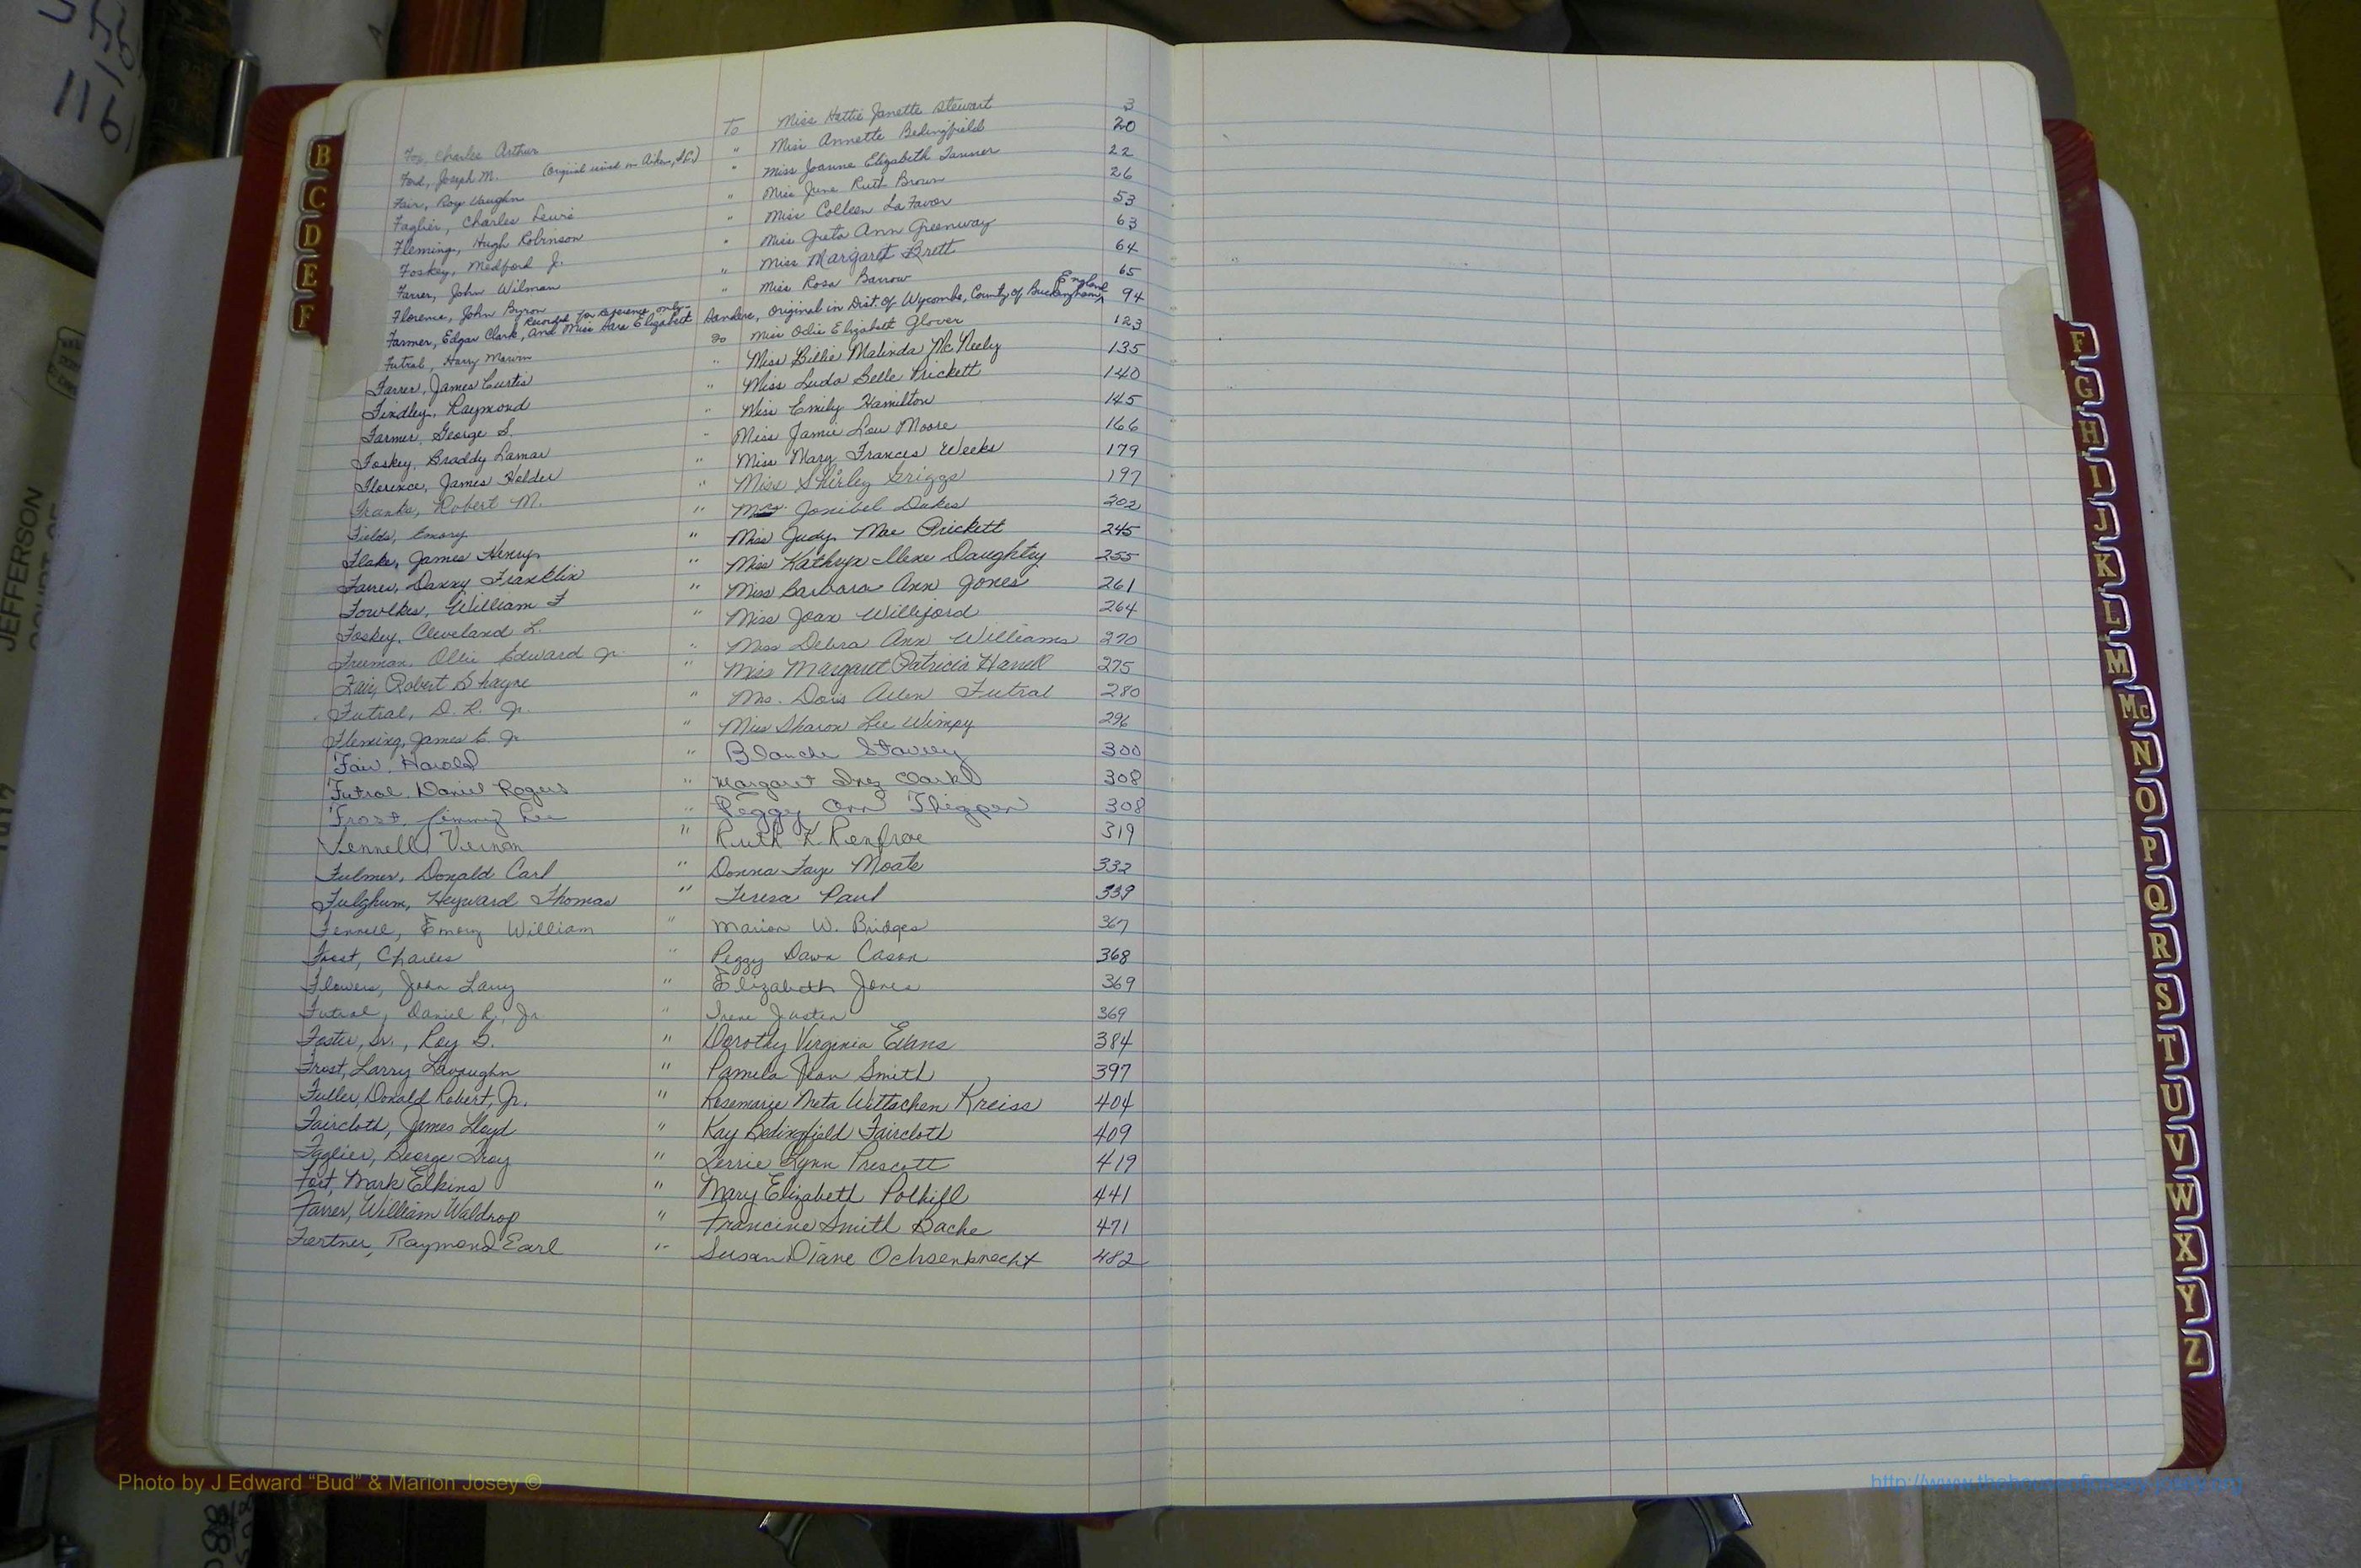 JEFFERSON
1161
B
C
D
E
F
Fox, Charles Arthur To Miss Hattie Janette Stewart 3
Ford, Joseph M. (Original issued in Aiken, S.C.) " Miss Annette Bedingfield 20
Fair, Roy Vaughn " Miss Joanne Elizabeth Tanner 22
Faglier, Charles Lewis " Miss June Ruth Brown 26
Fleming, Hugh Robinson " Miss Colleen LaFavor 53
Foskey, Medford J. " Miss Greta Ann Greenway 63
Farrer, John Wilman " Miss Margaret Brett 64
Florence, John Byron " Miss Rosa Barrow 65
Recorded for reference only- England
Farmer, Edgar Clark, and Miss Sara Elizabeth Sanders, Original in Dist. of Wycombe, County of Buckingham, 94
Futral, Harry Marvin To Miss Odie Elizabeth Glover 123
Farrer, James Curtis " Miss Billie Malinda McNeely 135
Findley, Raymond " Miss Luda Belle Prickett 140
Farmer, George S. " Miss Emily Hamilton 145
Foskey, Braddy Lamar " Miss Jamie Lou Moore 166
Florence, James Holder " Miss Mary Frances Weeks 179
Franks, Robert M. " Miss Shirley Griggs 197
Fields, Emory " Jonibel Dukes 202
Flake, James Henry " Miss Judy Mae Prickett 245
Farrer, Danny Franklin " Miss Kathryn Ilene Daughtry 255
Fowlkes, William F " Miss Barbara Ann Jones 261
Foskey, Cleveland L. " Miss Joan Williford 264
Freeman, Ollie Edward Jr. " Miss Debra Ann Williams 270
Fair, Robert Shayne " Miss Margaret Patricia Harrell 275
Futral, D. R. Jr. " Mrs. Doris Allen Futral 280
Fleming, James E. Jr " Miss Sharon Lee Wimpy 296
Fair, Harold " Blanche 300
Futral, Daniel Rogers " Margaret Inez Clark 308
Frost, Jimmy Lee " Peggy Ann Thigpen 308
Fennell, Vernon " Ruth K. Renfroe 319
Fulmer, Donald Carl " Donna Faye Moats 332
Fulghum, Heyward Thomas " Teresa Paul 339
Fennell, Emory William " Marion W. Bridges 367
Frost, Charles " Peggy Dawn Cason 368
Flowers, John Larry " Elizabeth Jones 369
Futral, Daniel R., Jr " Irene Justen 369
Foster, Sr., Roy B. " Dorothy Virginia Evans 384
Frost, Larry Lavaughn " Pamela Jean Smith 397
Fuller, Donald Robert, Jr. " Rosemarie Meta Wittachen Kreiss 404
Faircloth, James Lloyd " Kay Bedingfield Faircloth 409
Faglier, George Troy " Terrie Lynn Prescott 419
Fort, Mark Elkins " Mary Elizabeth Polhill 441
Farrer, William Waldrop " Francine Smith Bache 471
Fortner, Raymond Earl " Susan Diane Ochsenknecht 482
F
G
H
I
J
K
L
M
Mc
N
O
P
Q
R
S
T
U
V
W
X
Y
Z
Photo by J Edward “Bud” & Marion Josey ©